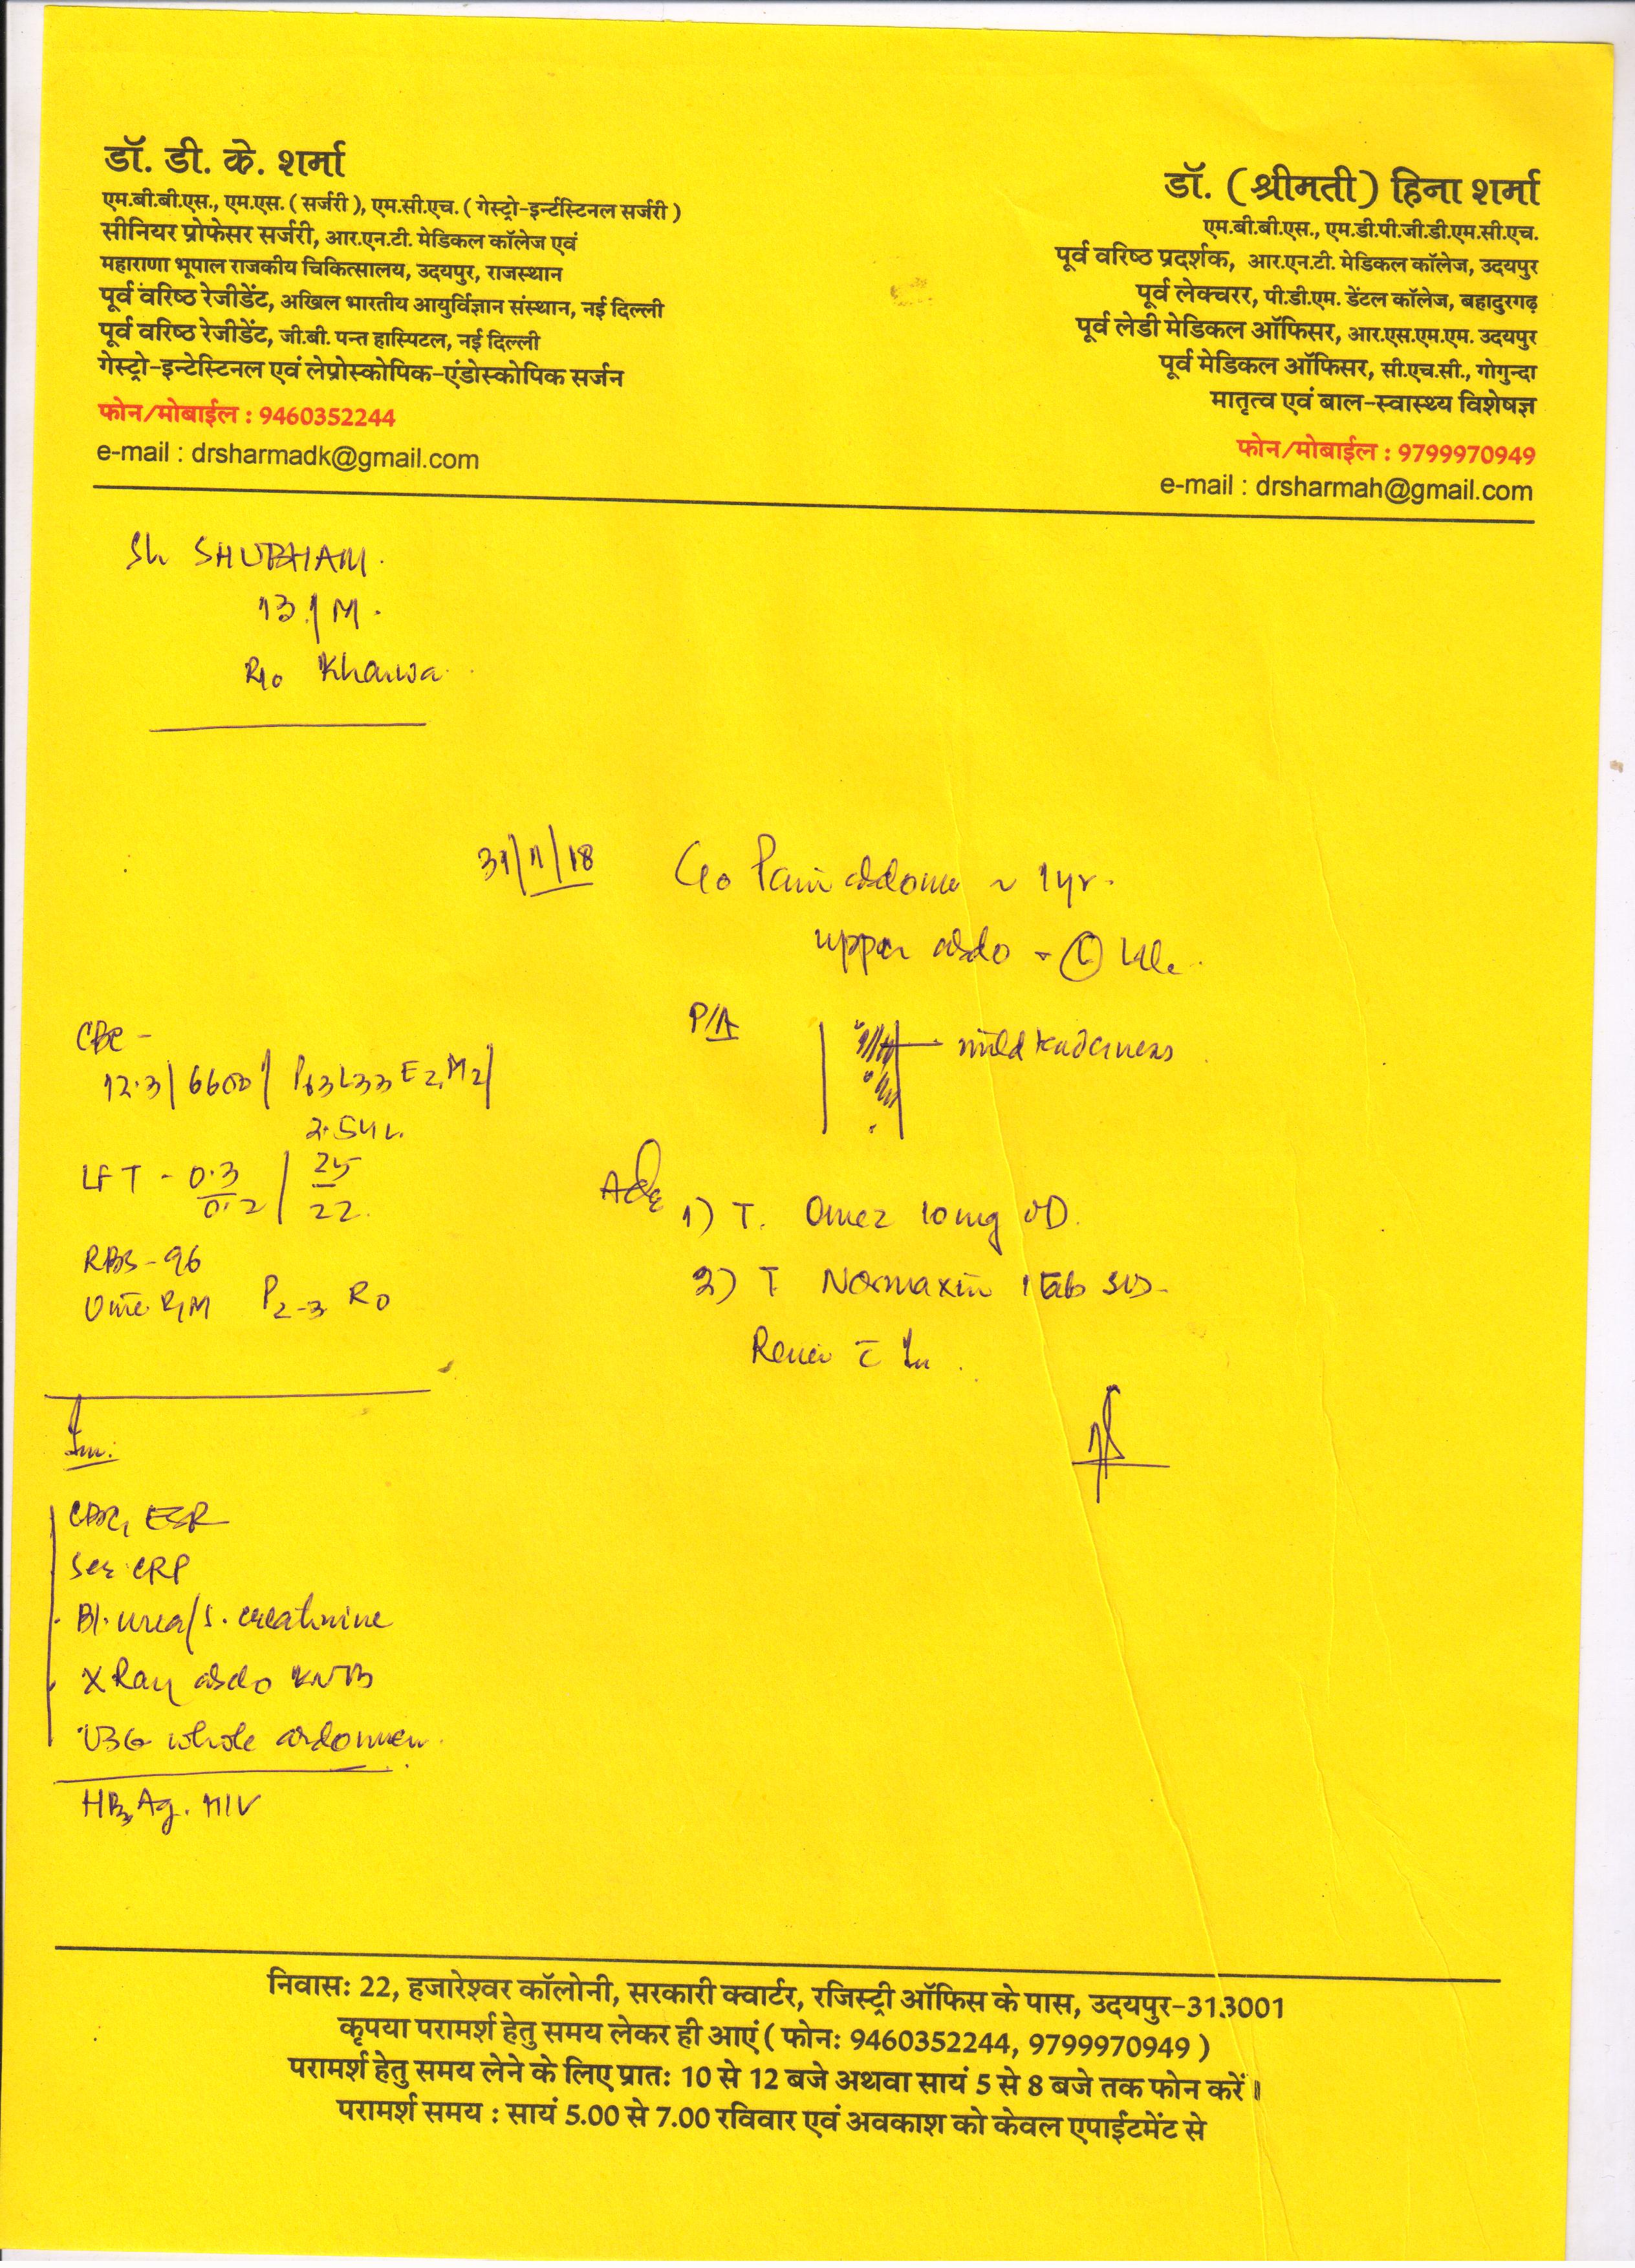 डॉ. डी. के. शर्मा
एम.बी.बी.एस., एम.एस. ( सर्जरी ), एम.सी.एच. ( गेस्ट्रो-इन्टेस्टिनल सर्जरी )
सीनियर प्रोफेसर सर्जरी, आर.एन.टी. मेडिकल कॉलेज एवं
महाराणा भूपाल राजकीय चिकित्सालय, उदयपुर, राजस्थान
पूर्व वरिष्ठ रेजीडेंट, अखिल भारतीय आयुर्विज्ञान संस्थान, नई दिल्ली
पूर्व वरिष्ठ रेजीडेंट, जी.बी. पन्त हास्पिटल, नई दिल्ली
गेस्ट्रो-इन्टेस्टिनल एवं लेप्रोस्कोपिक-एंडोस्कोपिक सर्जन
फोन/मोबाईल : 9460352244
e-mail : drsharmadk@gmail.com
डॉ. ( श्रीमती ) हिना शर्मा
एम.बी.बी.एस., एम.डी.पी.जी.डी.एम.सी.एच.
पूर्व वरिष्ठ प्रदर्शक, आर.एन.टी. मेडिकल कॉलेज, उदयपुर
पूर्व लेक्चरर, पी.डी.एम. डेंटल कॉलेज, बहादुरगढ़
पूर्व लेडी मेडिकल ऑफिसर, आर.एस.एम.एम. उदयपुर
पूर्व मेडिकल ऑफिसर, सी.एच.सी., गोगुन्दा
मातृत्व एवं बाल-स्वास्थ्य विशेषज्ञ
फोन/मोबाईल : 9799970949
e-mail : drsharmah@gmail.com
Sh SHUBHAM.
13/M.
R/o
C/o Pain abdome ~ 1yr.
upper abdo -
P/A
mild tenderness
Adv
1) T. Omez 10mg OD.
2) T Normaxin 1 tab SOS
CBC -
12.3 | 6600 | P63 L33 E2 M2 |
LFT - 0.3/0.2 | 25/22
RBS - 96
Urine R/M P2-3 R0
Inv.
CBC, ESR
Ser CRP
Bl. urea/S. creatinine
X Ray abdo KUB
USG whole abdomen.
HBsAg. HIV
निवास: 22, हजारेश्वर कॉलोनी, सरकारी क्वार्टर, रजिस्ट्री ऑफिस के पास, उदयपुर-313001
कृपया परामर्श हेतु समय लेकर ही आएं ( फोन: 9460352244, 9799970949 )
परामर्श हेतु समय लेने के लिए प्रात: 10 से 12 बजे अथवा सायं 5 से 8 बजे तक फोन करें।
परामर्श समय : सायं 5.00 से 7.00 रविवार एवं अवकाश को केवल एपाईटमेंट से